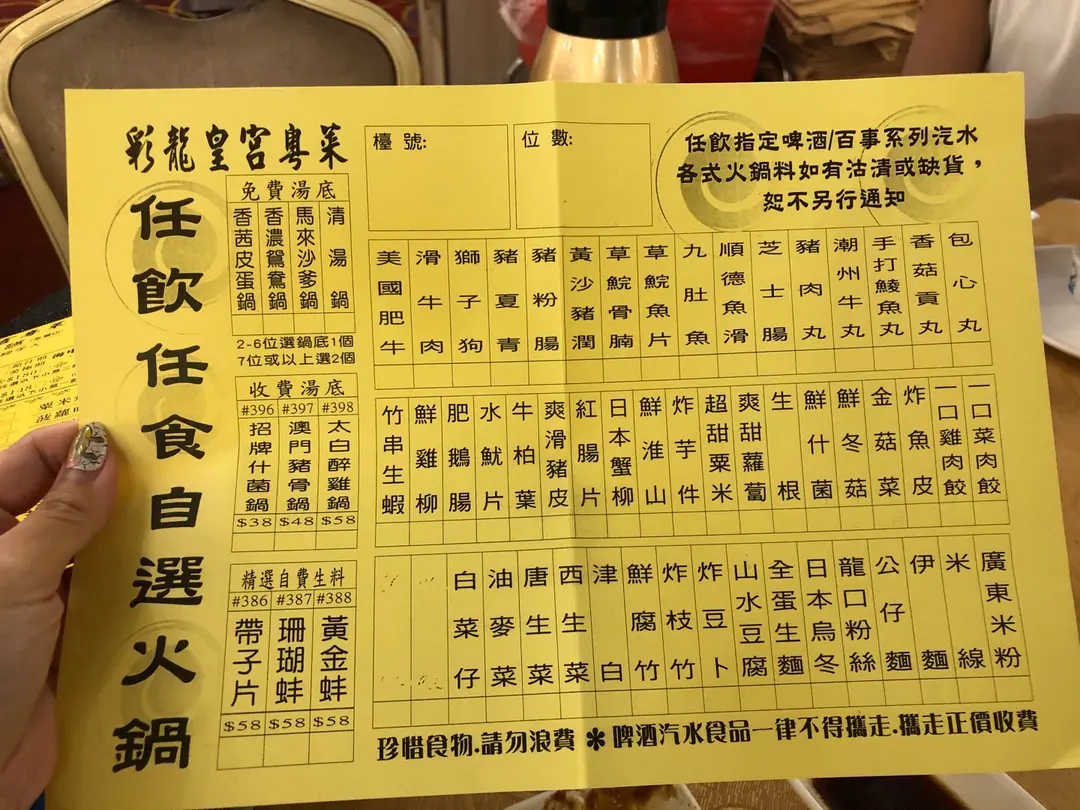 彩龍皇宮粵菜
任飲任食自選火鍋
檯號:
位數:
任飲指定啤酒/百事系列汽水
各式火鍋料如有沽清或缺貨，
恕不另行通知
免費湯底
香茜皮蛋鍋
香濃鴛鴦鍋
馬來沙爹鍋
清湯鍋
2-6位選鍋底1個
7位或以上選2個
收費湯底
#396 #397 #398
招牌什菌鍋
澳門豬骨鍋
太白醉雞鍋
$38 $48 $58
精選自費生料
#386 #387 #388
帶子片
珊瑚蚌
黃金蚌
$58 $58 $58
美國肥牛
滑牛肉
獅子狗
豬夏青
豬粉腸
黃沙豬潤
草鯇骨腩
草鯇魚片
九肚魚
順德魚滑
芝士腸
豬肉丸
潮州牛丸
手打鯪魚丸
香菇貢丸
包心丸
竹串生蝦
鮮雞柳
肥鵝腸
水魷片
牛柏葉
爽滑豬皮
紅腸片
日本蟹柳
鮮淮山
炸芋件
超甜粟米
爽甜蘿蔔
生根
鮮什菌
鮮冬菇
金菇菜
炸魚皮
一口雞肉餃
一口菜肉餃
白菜仔
油麥菜
唐生菜
西生菜
津白
鮮腐竹
炸枝竹
炸豆卜
山水豆腐
全蛋生麵
日本烏冬
龍口粉絲
公仔麵
伊麵
米線
廣東米粉
珍惜食物.請勿浪費 ✻ 啤酒汽水食品一律不得攜走.攜走正價收費